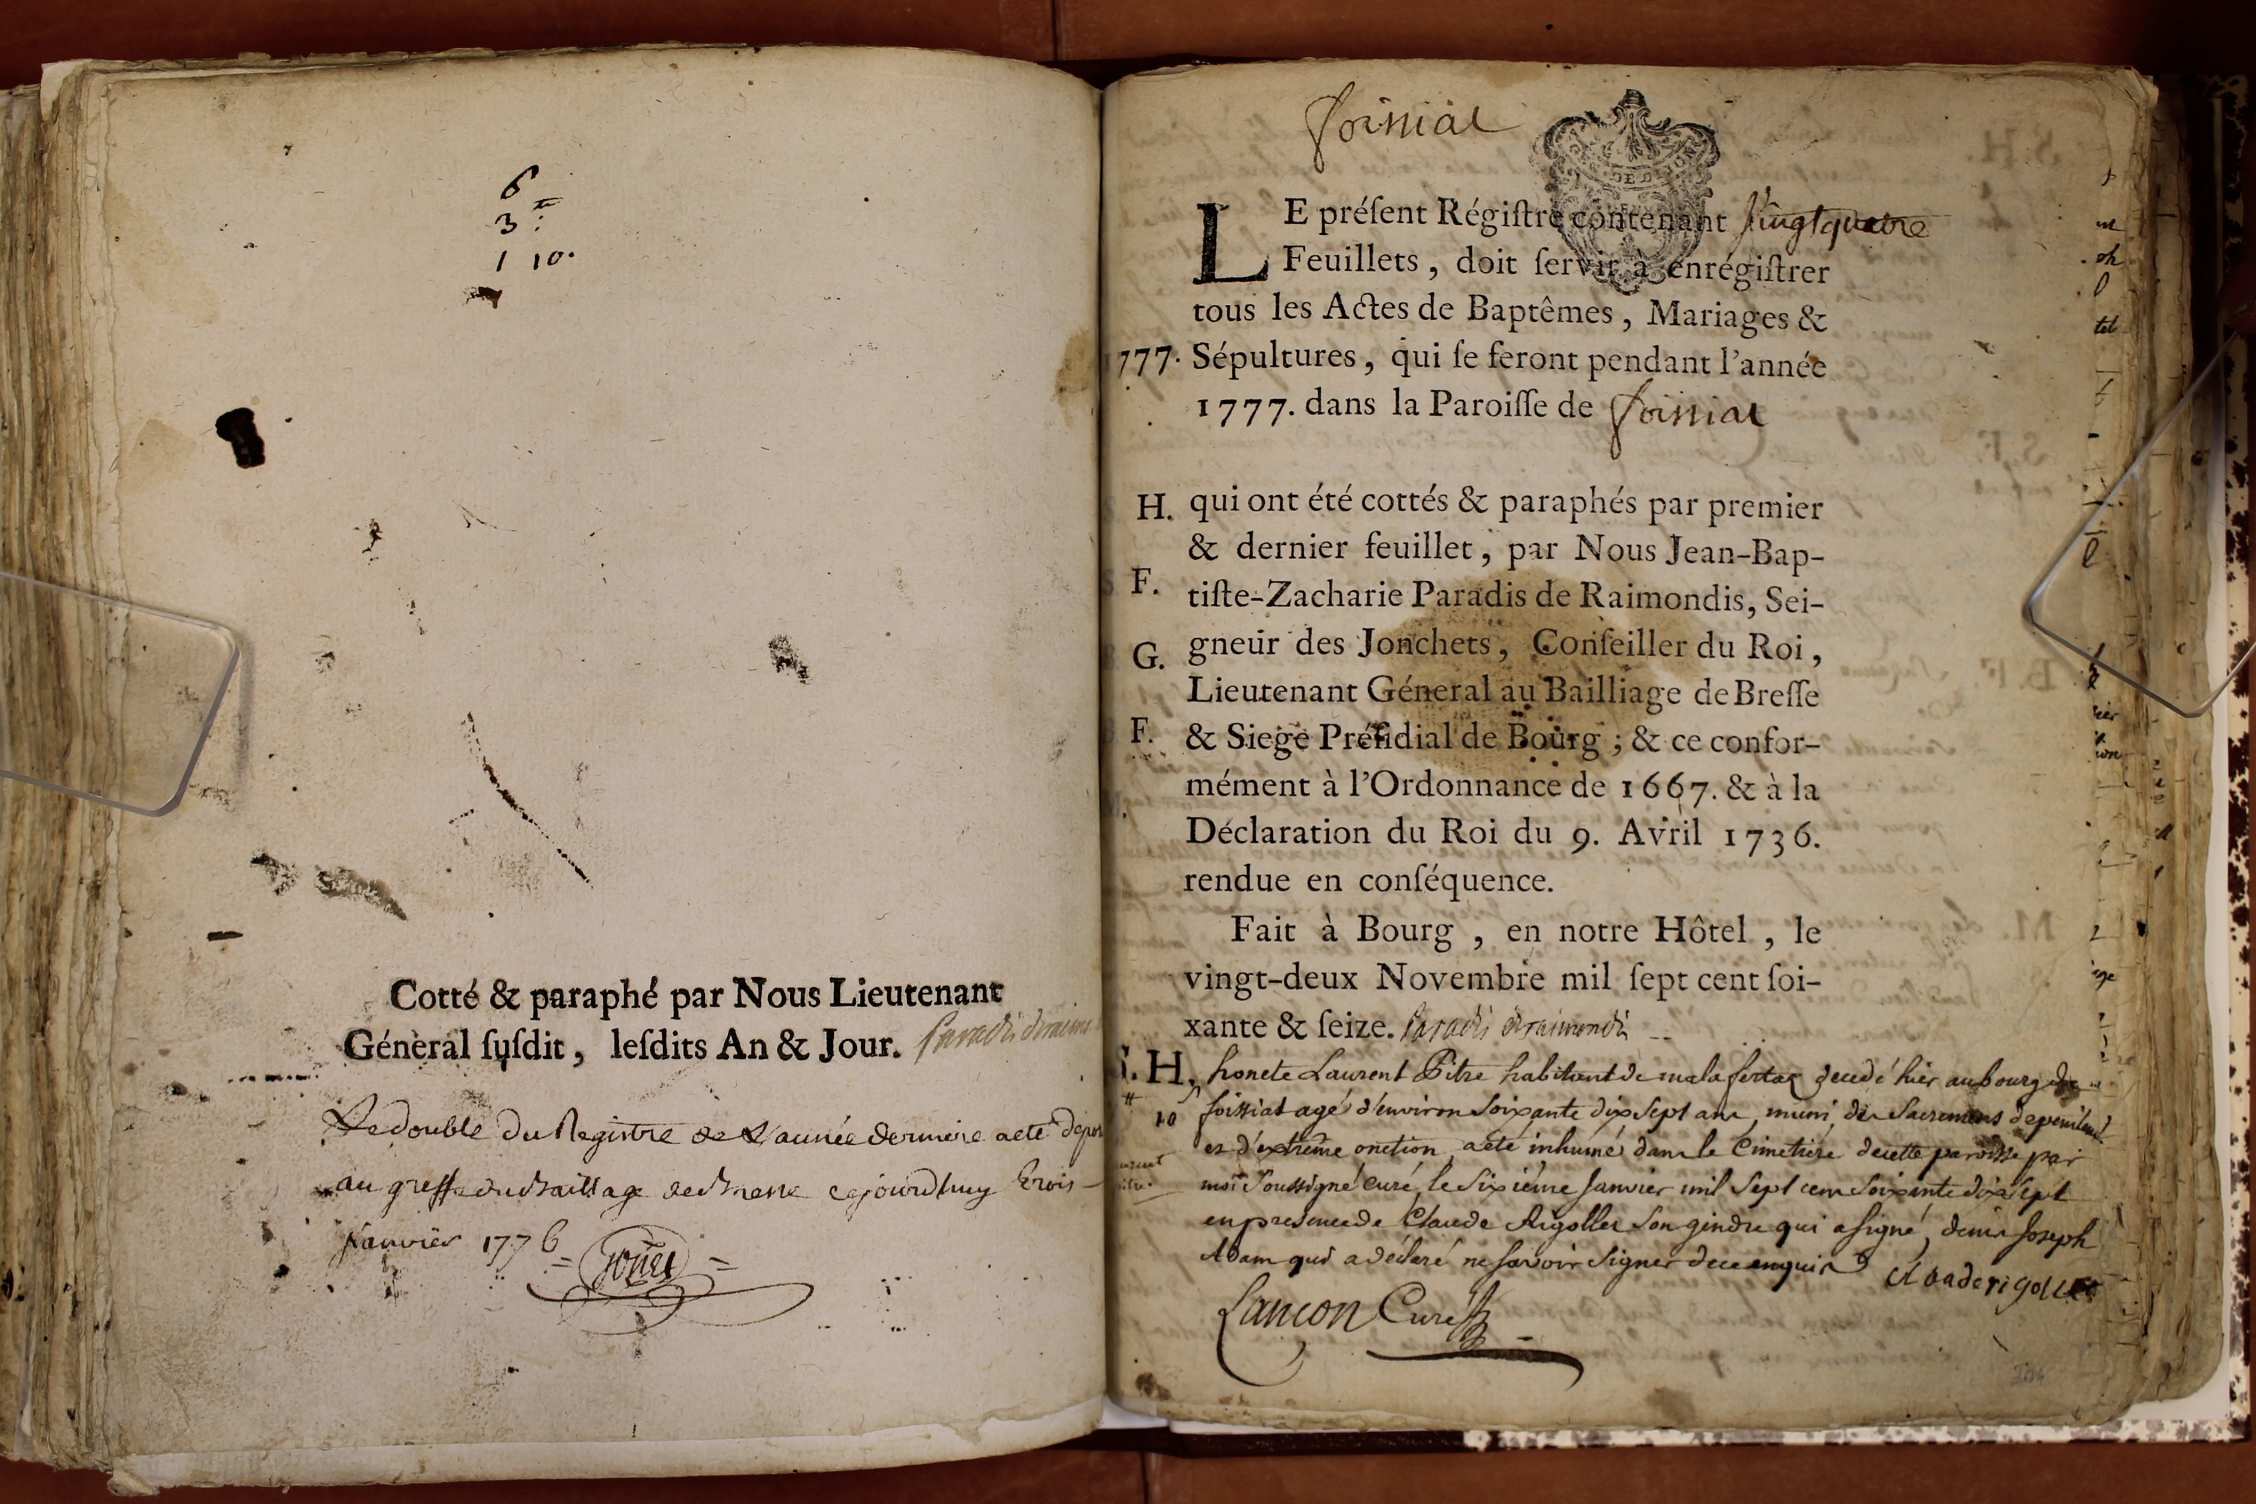 6
3 ·:
1 10.
Cotté & paraphé par Nous Lieutenant
Général ſuſdit, leſdits An & Jour. Paradis deraimo
Le double Du Registre de L'année derniere a eté Depos
au greffe du Bailliage de Bresse cejourdhuy trois
Janvier 1776
foissiat
LE préſent Régiſtre contenant vingtquatre
Feuillets, doit ſervir à enrégiſtrer
tous les Actes de Baptêmes, Mariages &
1777. Sépultures, qui ſe feront pendant l'année
1777. dans la Paroiſſe de foissiat
H. qui ont été cottés & paraphés par premier
& dernier feuillet, par Nous Jean-Bap-
S F. tiſte-Zacharie Paradis de Raimondis, Sei-
G. gneur des Jonchets, Conſeiller du Roi,
Lieutenant Géneral au Bailliage de Breſſe
F. & Siege Préſidial de Bourg; & ce confor-
mément à l'Ordonnance de 1667. & à la
M. Déclaration du Roi du 9. Avril 1736.
rendue en conſéquence.
Fait à Bourg, en notre Hôtel, le
vingt-deux Novembre mil ſept cent ſoi-
xante & ſeize. Paradis deraimondis
S. H. honete Laurent Pitre habitant de malafertaz decedé hier au bourg de
10 s foissiat agé d'environ soixante dix sept ans, muni des sacremens de penitence
et d'extrême onction, a eté inhumé dans le Cimetiére de cette paroisse par
moi Soussigné curé, le sixiéme Janvier mil sept cent soixante dix sept
en presence de Claude Rigollet son gendre qui a signé, denis Joseph
Adam qui a déclaré ne savoir signer de ce enquis
Cloade rigollet
Lancon Curé